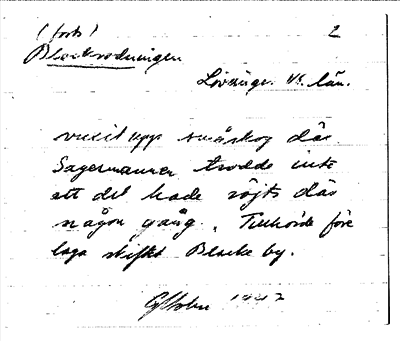 (forts) 2
Blackrodningen
Lovsinge. Us. län.
vuxit upp småskog där
Sagesmannen trodde inte
att det hade röjts där
någon gång. Tillhörde före
laga skiftet Blacke by.
1942